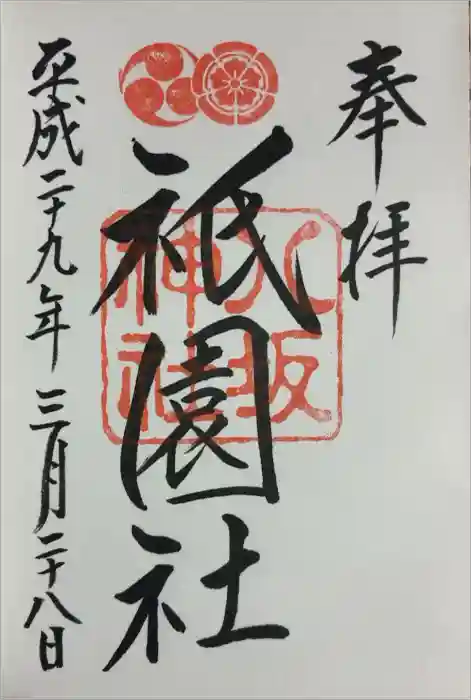 奉拝
祇園社
八坂神社
平成二十九年三月二十八日